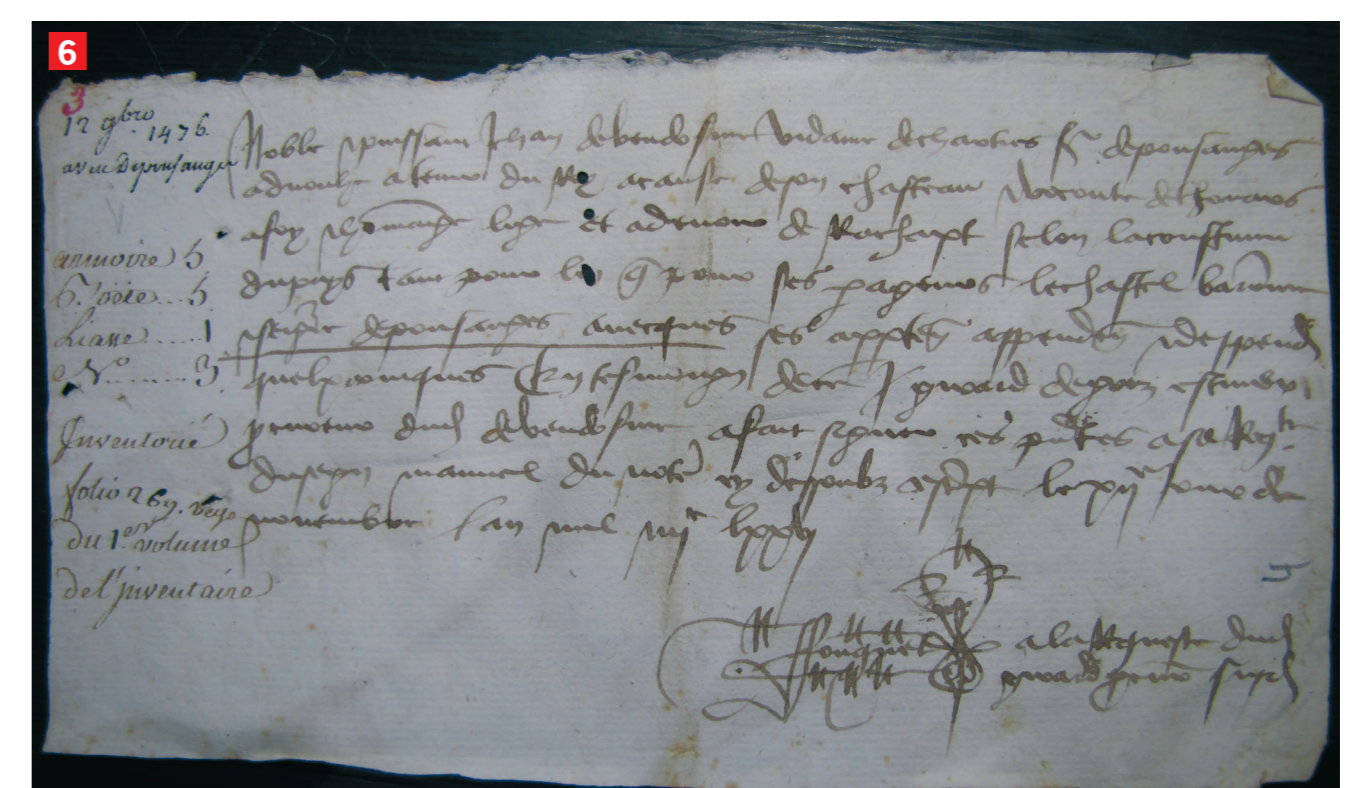 6
3
12 9bre 1476.
aveu De pousauges
armoire 5
Liasse ..... 1
No ....... 3
Inventorié
folio 269. vego
du 1er volume
de l'inventaire
Noble & puissant Jehan de vendosme vidame de chartres sr de pousauges
advouhe a tenir du Roy a cause de son chasteau & viconte de thouars
a foy & homaige lige et a devoir de Rachapt selon la coustume
du pays tant pour luy q pour ses parageurs le chastel baronnie
& seigrie de pousauges avecques ses apparten appenden & deppend
quelxconques En tesmoing de ce
procureur dud de vendosme a fait signer ces pntes a sa Reqte
du seign manuel du note cy dessoubz escript le xije jour de
novembre l'an mil iiijc lxxvj
Fouquet
a la Requeste dud
procur susd